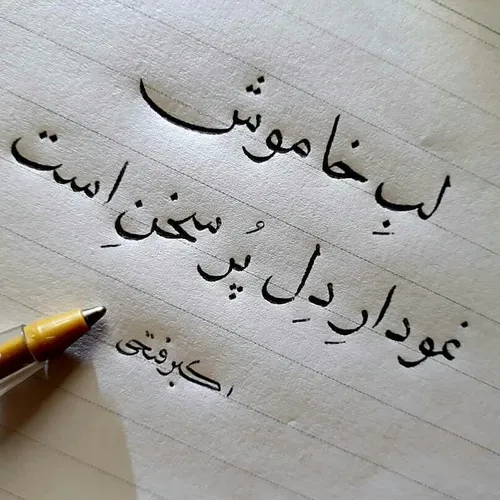 لبِ خاموش
نمودارِ دلِ پُر سخنِ است
اکبر فتحی